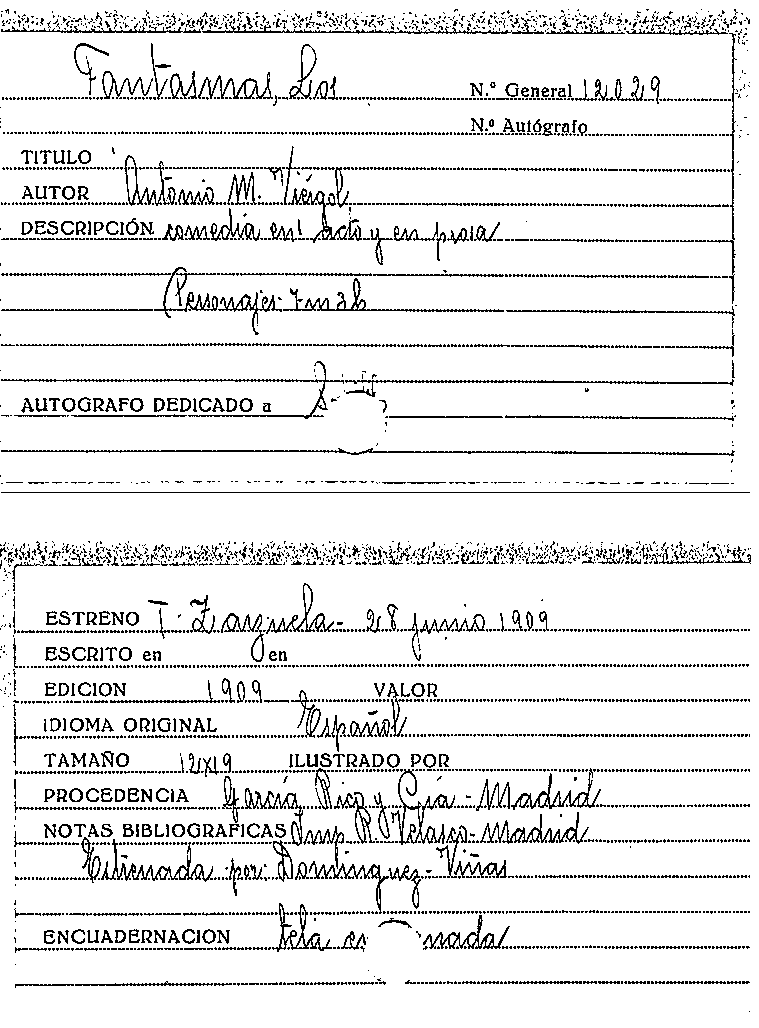 Fantasmas, Los
N.º General 12.029
N.º Autógrafo
TITULO
AUTOR Antonio M. Viérgol
DESCRIPCIÓN comedia en 1 acto y en prosa
Personajes 7 m 3 h
AUTOGRAFO DEDICADO a
ESTRENO T. Zarzuela - 28 junio 1909
ESCRITO en en
EDICION 1909 VALOR
IDIOMA ORIGINAL Español
TAMAÑO 12x19 ILUSTRADO POR
PROCEDENCIA García Rico y Cía - Madrid
NOTAS BIBLIOGRAFICAS Imp. R. Velasco - Madrid
Estrenada por: Dominguez - Viñas
ENCUADERNACION tela